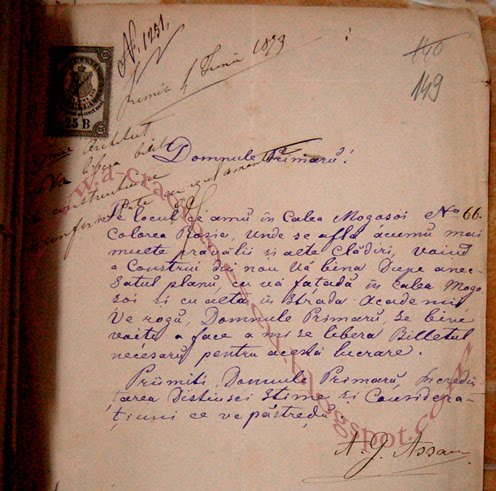 No. 1251.
140
149
Primit 1 Iunie 1873
25 B
Architect
Va libera bilet
de construcțiune
conform
Domnule Primarŭ!
Pe locul ce amŭ în Calea Mogosoi No 66.
Colorea Rosie, unde se afla acumŭ mai
multe pravălii și alte Clădiri, voind
a Construi din nou Uă bina Dupe anec-
satul planŭ, cu uă fațadă în Calea Mogo
soi și cu alta în Strada Academii
Ve rogŭ, Domnule Primarŭ, se bine
voiți a face a mi se libera Billetul
necesarŭ pentru acestă lucrare.
Priimiti Domnule Primarŭ, Incredin
țarea Distinsei Stime și Considera-
țiuni ce ve păstredŭ.
A. G. Assan